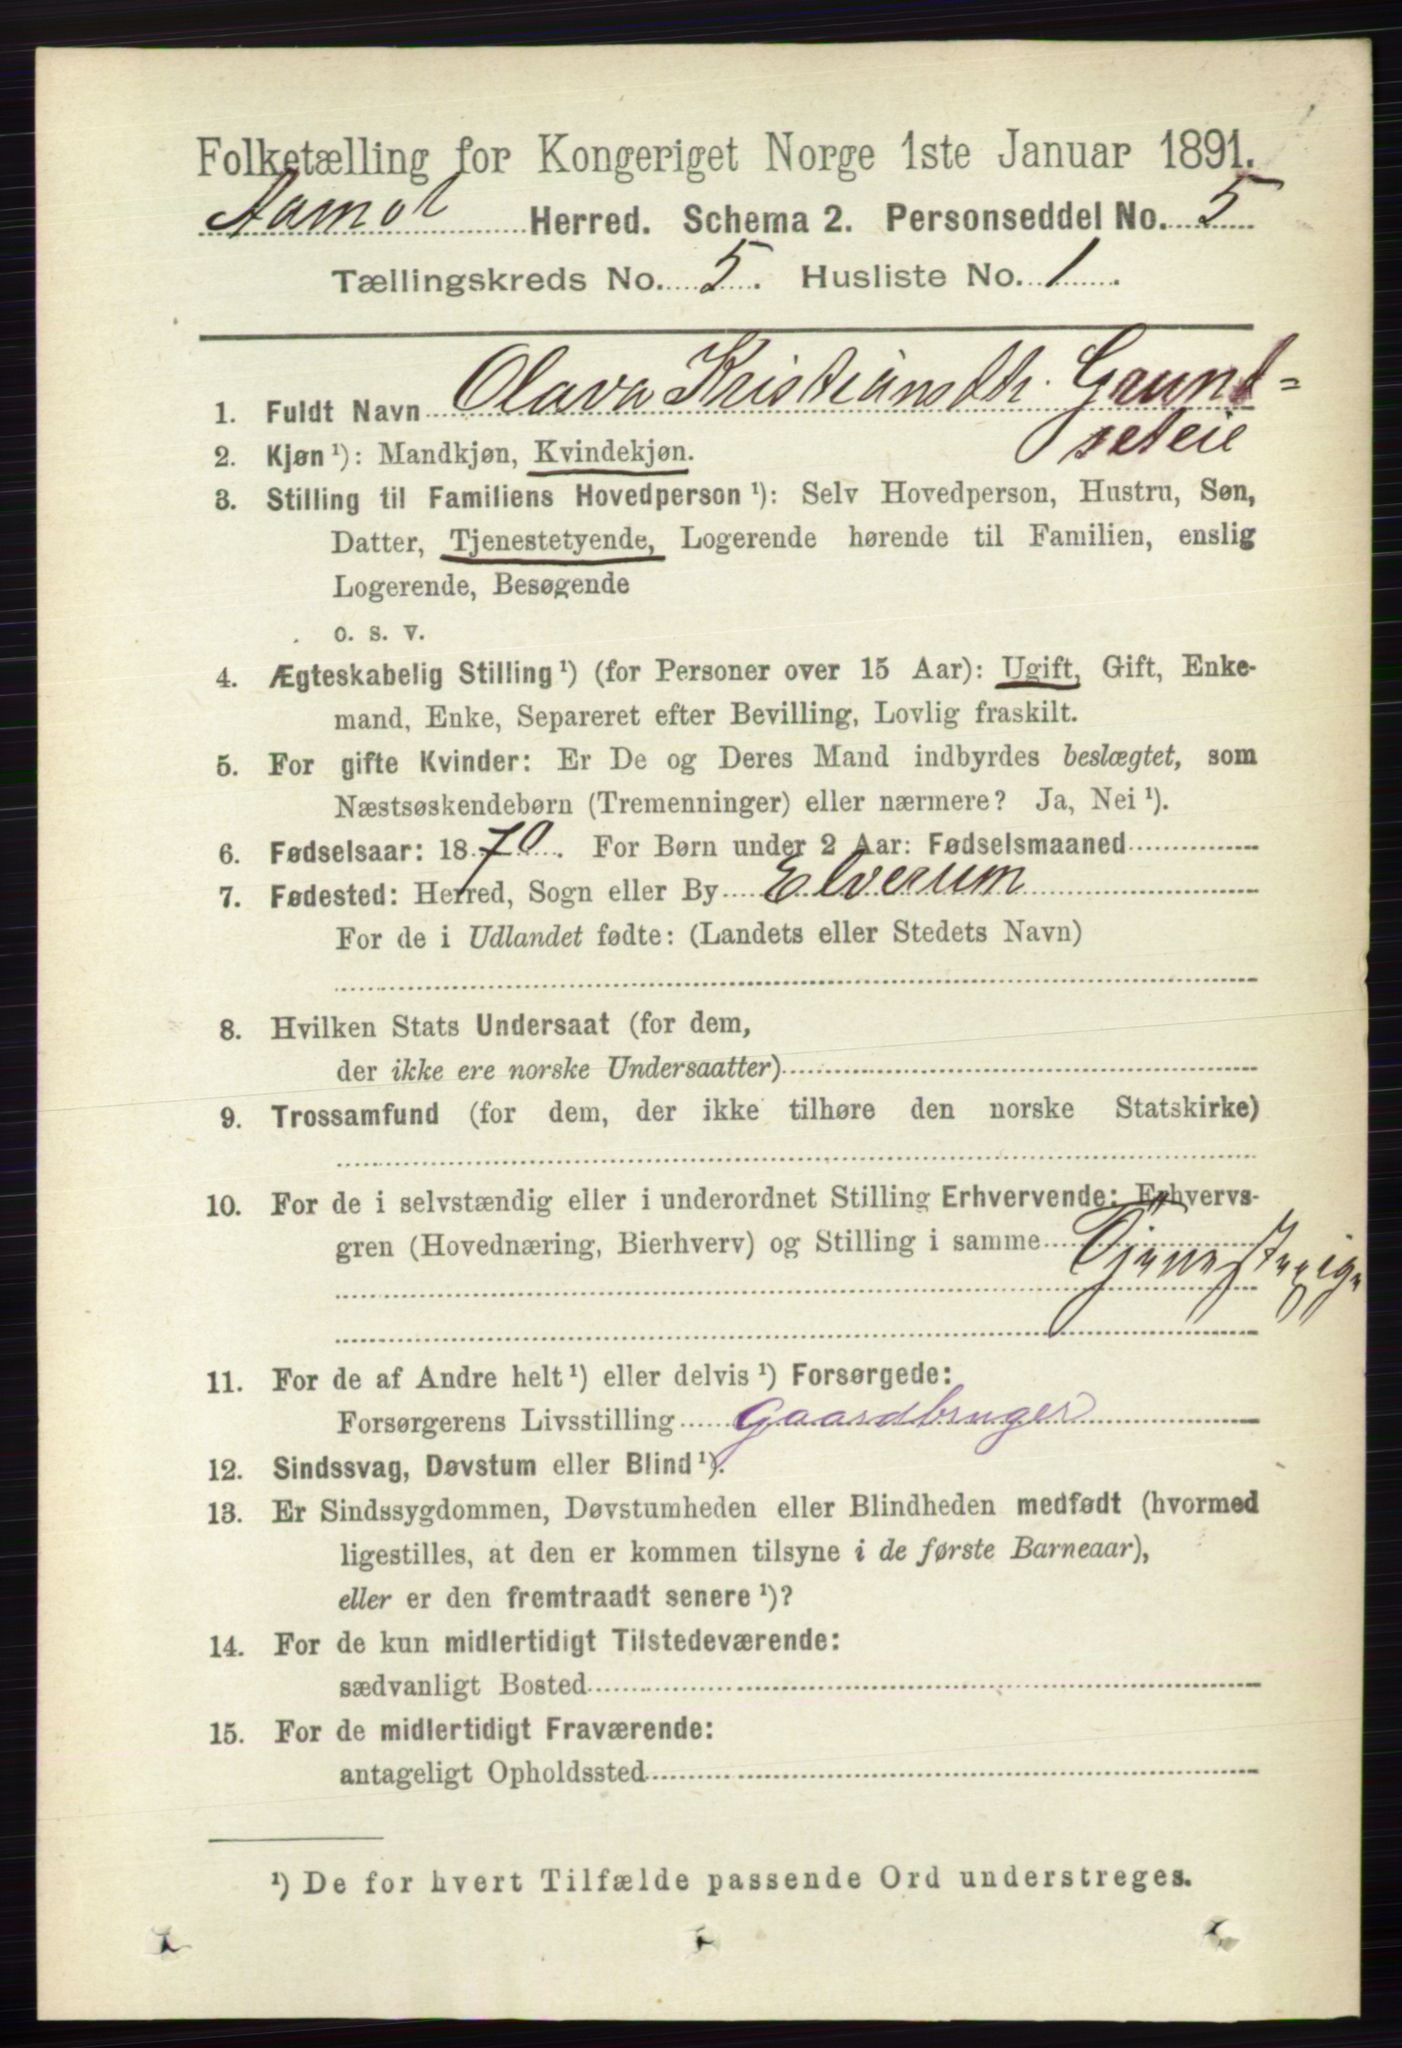 Folketælling for Kongeriget Norge 1ste Januar 1891.
Aamot Herred. Schema 2. Personseddel No. 5
Tællingskreds No. 5. Husliste No. 1.
1. Fuldt Navn Olava Kristiansdth. Grunt=
seteie
2. Kjøn ¹): Mandkjøn, Kvindekjøn.
3. Stilling til Familiens Hovedperson ¹): Selv Hovedperson, Hustru, Søn,
Datter, Tjenestetyende, Logerende hørende til Familien, enslig
Logerende, Besøgende
o. s. v.
4. Ægteskabelig Stilling ¹) (for Personer over 15 Aar): Ugift, Gift, Enke-
mand, Enke, Separeret efter Bevilling, Lovlig fraskilt.
5. For gifte Kvinder: Er De og Deres Mand indbyrdes beslægtet, som
Næstsøskendebørn (Tremenninger) eller nærmere? Ja, Nei ¹).
6. Fødselsaar: 1870. For Børn under 2 Aar: Fødselsmaaned
7. Fødested: Herred, Sogn eller By Elverum
For de i Udlandet fødte: (Landets eller Stedets Navn)
8. Hvilken Stats Undersaat (for dem,
der ikke ere norske Undersaatter)
9. Trossamfund (for dem, der ikke tilhøre den norske Statskirke)
10. For de i selvstændig eller i underordnet Stilling Erhvervende: Erhvervs-
gren (Hovednæring, Bierhverv) og Stilling i samme Tjenestepige
11. For de af Andre helt ¹) eller delvis ¹) Forsørgede:
Forsørgerens Livsstilling Gaardbruger
12. Sindssvag, Døvstum eller Blind ¹).
13. Er Sindssygdommen, Døvstumheden eller Blindheden medfødt (hvormed
ligestilles, at den er kommen tilsyne i de første Barneaar),
eller er den fremtraadt senere ¹)?
14. For de kun midlertidigt Tilstedeværende:
sædvanligt Bosted
15. For de midlertidigt Fraværende:
antageligt Opholdssted
¹) De for hvert Tilfælde passende Ord understreges.